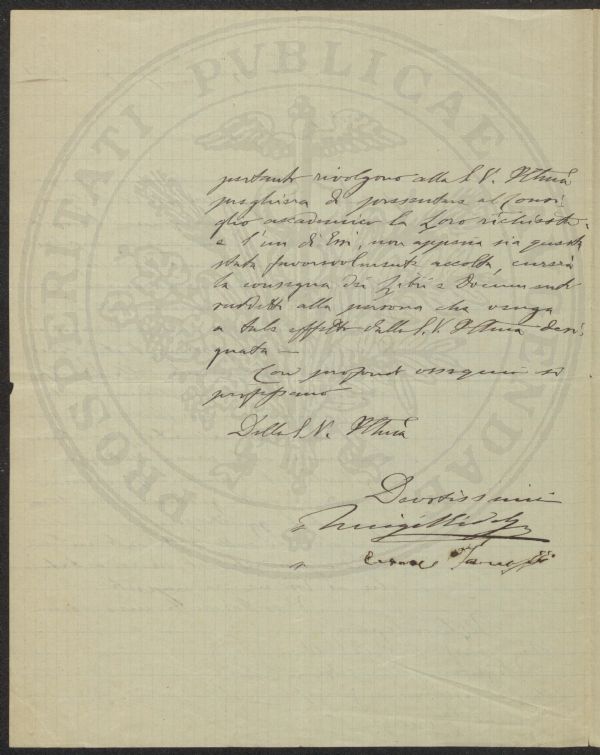 PROSPERITATI PVBLICAE
pertanto rivolgono alla S. V. Ill.ma
preghiera di presentare al Consi-
glio accademico la Loro richiesta,
e l'un di Essi, non appena sia questa
stata favorevolmente accolta, curerà
la consegna dei Libri e Documenti
suddetti alla persona che venga
a tale effetto dalla S. V. Ill.ma desi-
gnata —
Con profondo ossequio si
professano
Della S. V. Ill.ma
Devotissimi
Luigi
Cesare